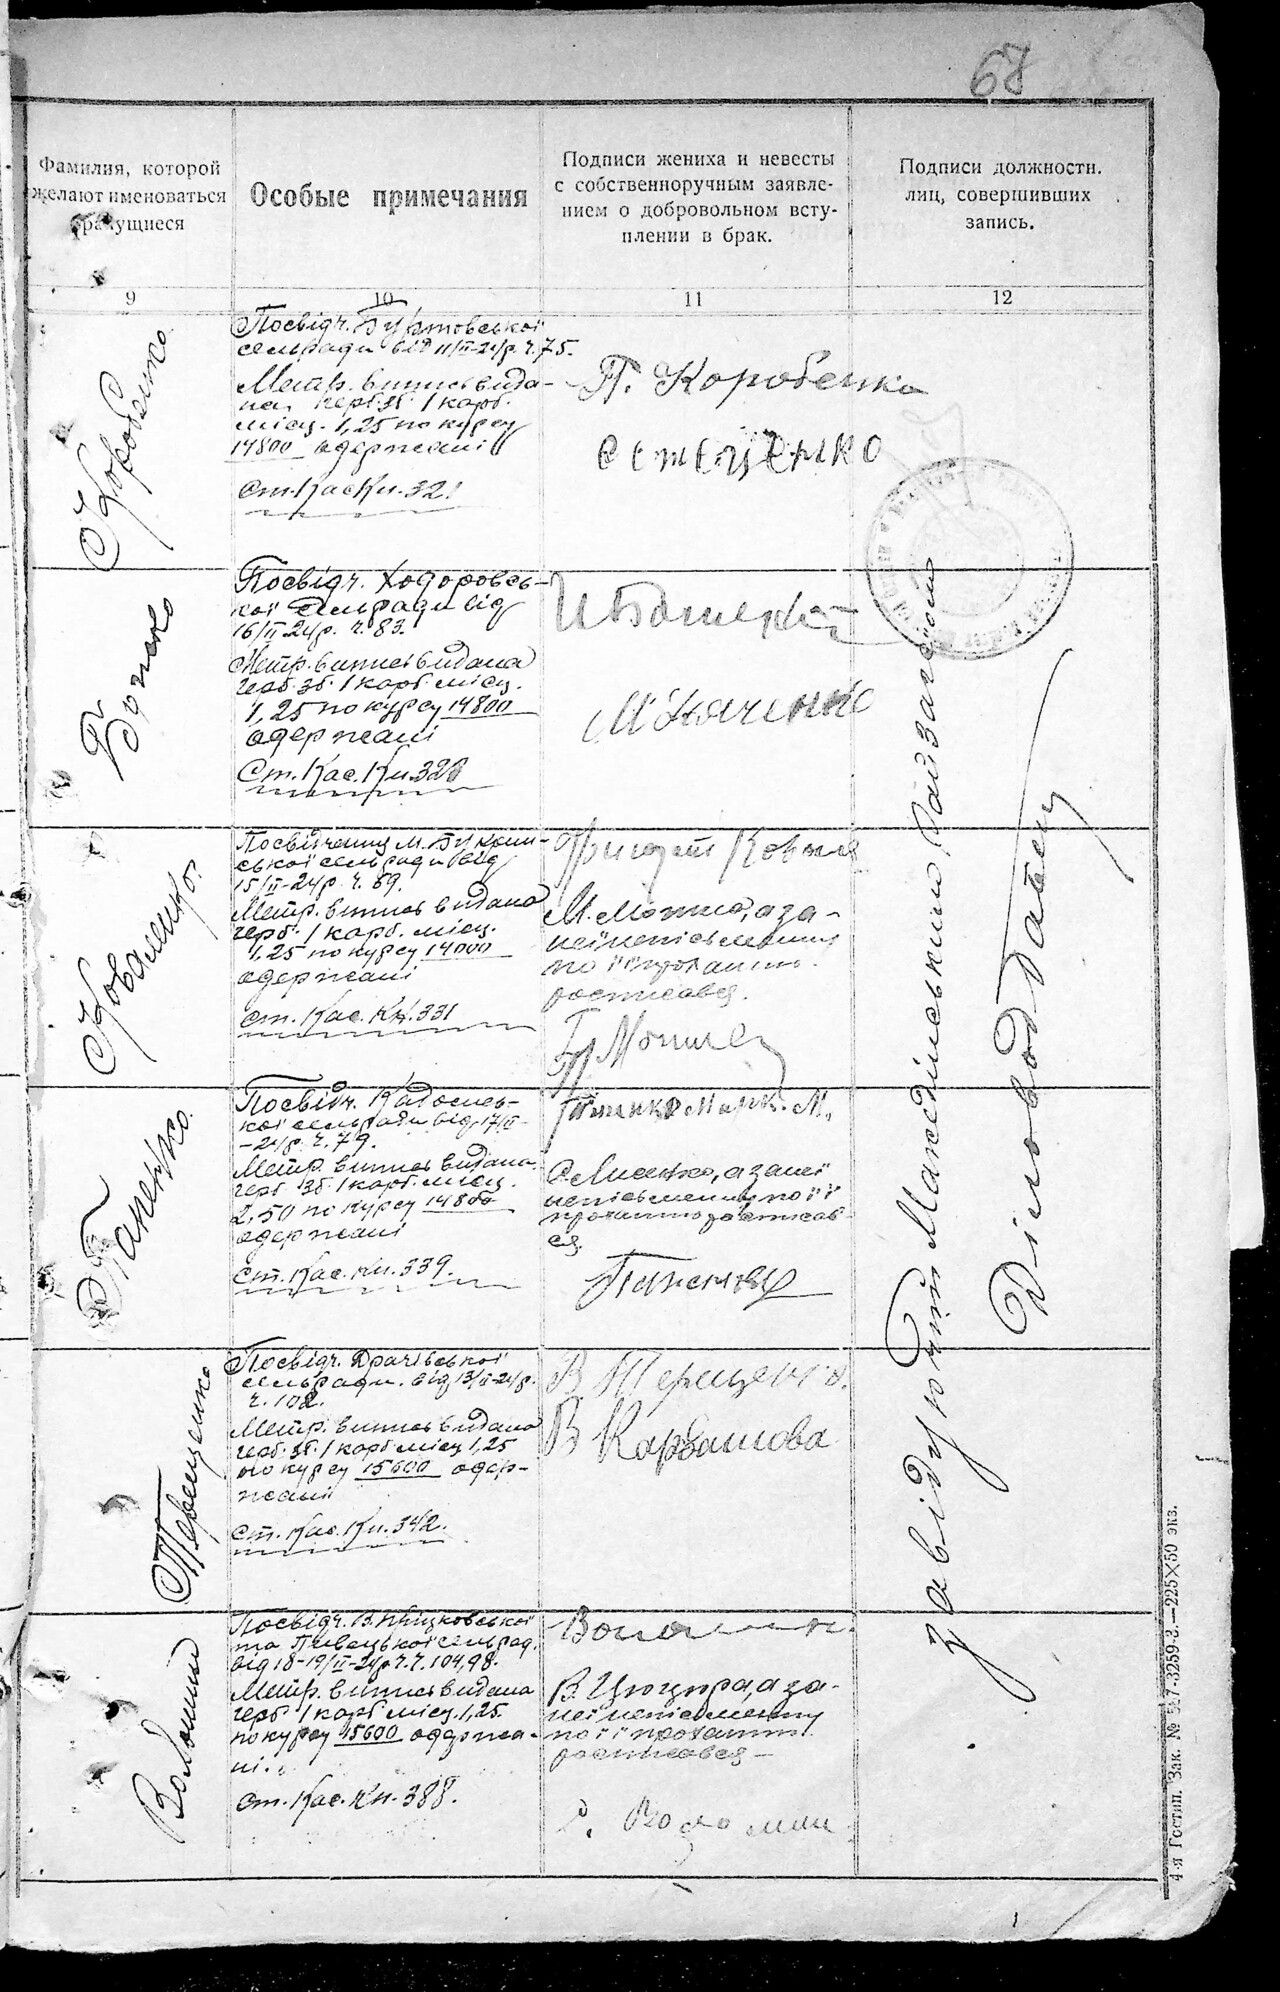 67
Фамилия, которой
желают именоваться
брачущиеся
Особые примечания
Подписи жениха и невесты
с собственноручным заявле-
нием о добровольном всту-
плении в брак.
Подписи должностн.
лиц, совершивших
запись.
9
10
11
12
Коробенко
Посвідч. Буртовської
сельради від 11/II-24р. ч. 75.
Метр. випись вида-
на герб. зб. 1 карб.
місц. 1,25 по курсу
14800 одержані
Ст. Кас Кн. 321
П. Коробенко
Стеценко
Бошко
Посвідч. Ходоровсь-
кої сельради від
16/II-24р. ч. 83.
Метр. випись видана
герб. зб. 1 карб. місц.
1,25 по курсу 14800
одержані
Ст. Кас. Кн. 328
Коваленко.
Посвідчення М. Букрин-
ської сельради від
15/II-24р. ч. 69.
Метр. випись видана
герб. 1 карб. місц.
1,25 по курсу 14000
одержані
ст. Кас. Кн. 331
а за-
неї неписьменну
по її проханню
росписався.
Папенко.
Посвідч. Кадомсь-
кої сельради від 17/II-
-24р. ч. 79.
Метр. випись видана
герб. зб. 1 карб. місц.
2,50 по курсу 14800
одержані
ст. Кас. Кн. 339.
а за неї
неписьменну по її
проханню росписав-
ся.
Терещенко
Посвідч. Драчівської
сельради. від 13/II-24р.
ч. 102.
Метр. випись видана
герб. зб. 1 карб місц 1,25
по курсу 15600 одер-
жані
ст. Кас. Кн. 342.
В Терещенко.
В Карбашова
Волошин
Посвідч. В. Прицковської
та Пивецької сельрад.
від 18-19/II-24р ч.ч. 104, 98.
Метр. випись видана
герб. 1 карб місц. 1,25.
по курсу 15600 одержа-
ні.
ст. Кас. Кн. 388.
Волошин.
В. Цюцюра, а за-
неї неписьменну
по її проханню
росписався —
Волошин
завідуючий Македінським Райзагсом
Діловод
4-я Гостип. Зак. № 547-3259-3.—225×50 экз.